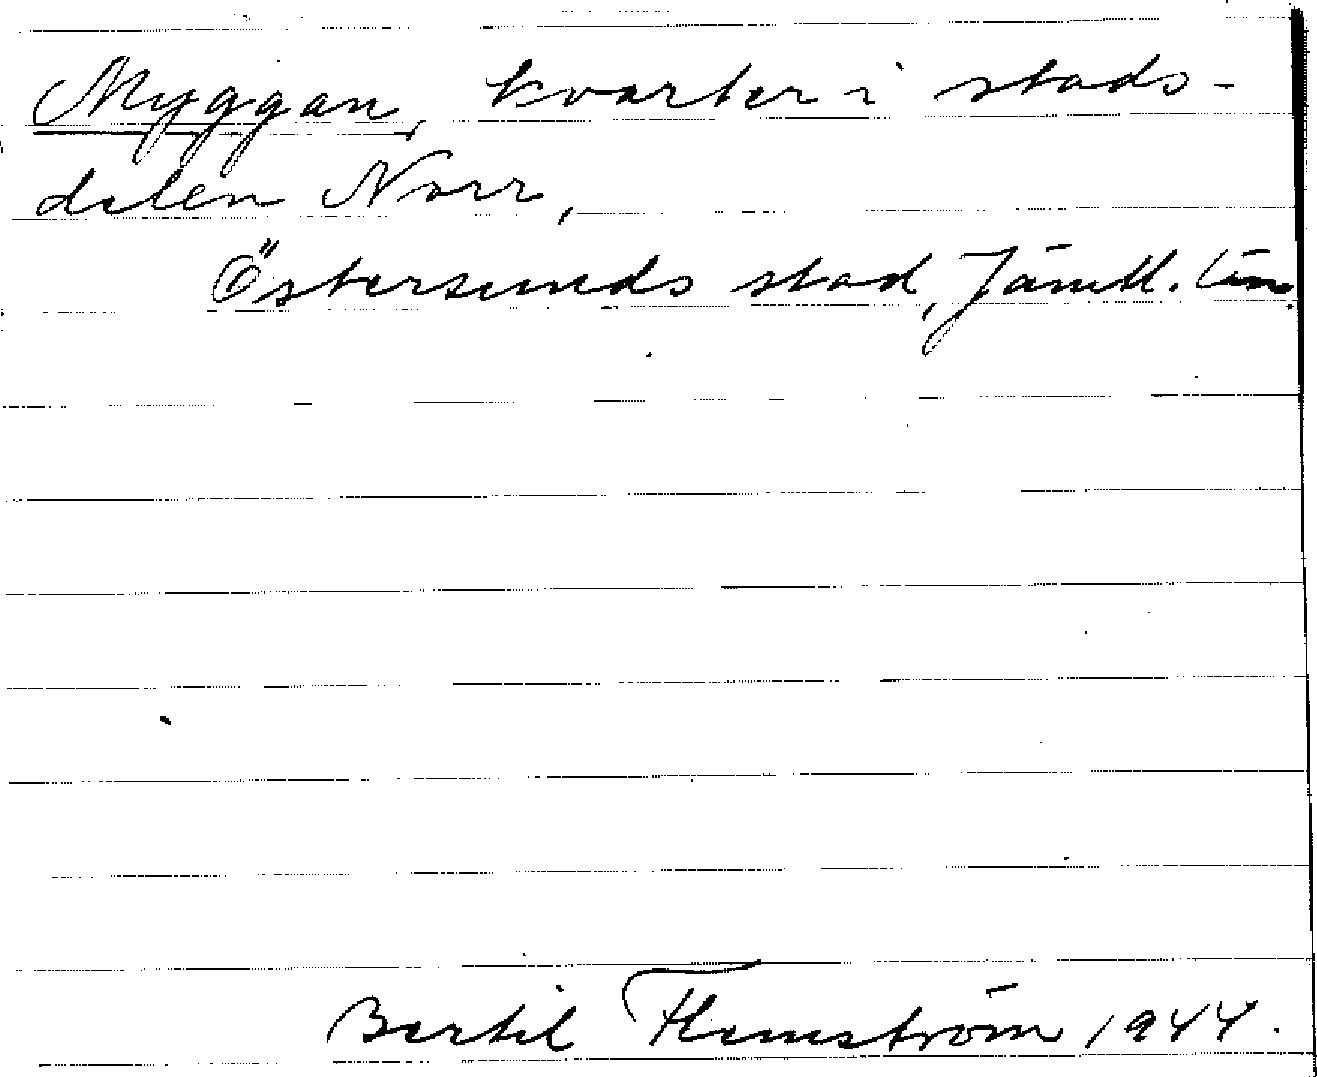 Myggan, kvarter i stads-
delen Norr,
Östersunds stad, Jämtl. län
Bertil Flemström 1944.